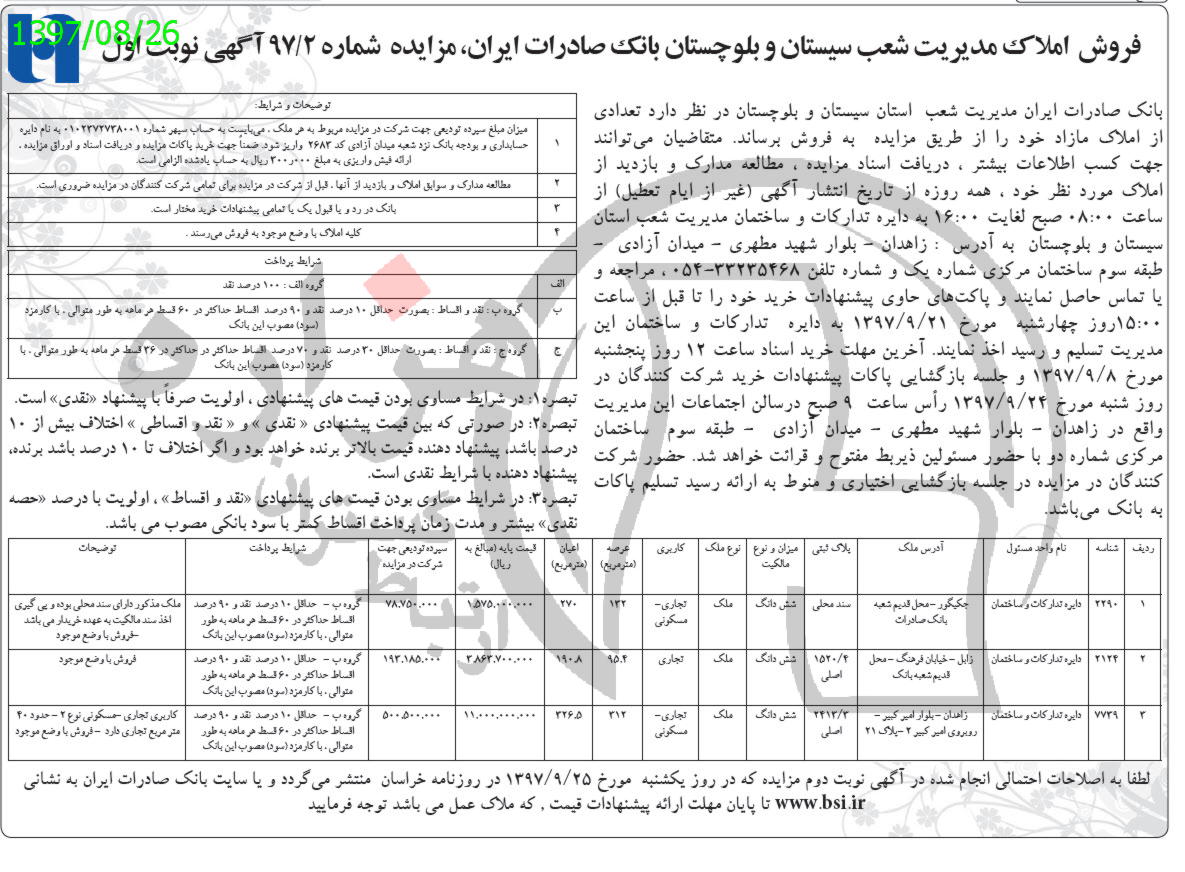 1397/08/26
فروش املاک مدیریت شعب سیستان و بلوچستان بانک صادرات ایران، مزایده شماره ۹۷/۲ آگهی نوبت اول
بانک صادرات ایران مدیریت شعب استان سیستان و بلوچستان در نظر دارد تعدادی
از املاک مازاد خود را از طریق مزایده به فروش برساند. متقاضیان می‌توانند
جهت کسب اطلاعات بیشتر ، دریافت اسناد مزایده ، مطالعه مدارک و بازدید از
املاک مورد نظر خود ، همه روزه از تاریخ انتشار آگهی (غیر از ایام تعطیل) از
ساعت ۰۸:۰۰ صبح لغایت ۱۶:۰۰ به دایره تدارکات و ساختمان مدیریت شعب استان
سیستان و بلوچستان به آدرس : زاهدان – بلوار شهید مطهری – میدان آزادی –
طبقه سوم ساختمان مرکزی شماره یک و شماره تلفن ۳۳۲۳۵۴۶۸-۰۵۴ ، مراجعه و
یا تماس حاصل نمایند و پاکت‌های حاوی پیشنهادات خرید خود را تا قبل از ساعت
۱۵:۰۰روز چهارشنبه مورخ ۱۳۹۷/۹/۲۱ به دایره تدارکات و ساختمان این
مدیریت تسلیم و رسید اخذ نمایند. آخرین مهلت خرید اسناد ساعت ۱۲ روز پنجشنبه
مورخ ۱۳۹۷/۹/۸ و جلسه بازگشایی پاکات پیشنهادات خرید شرکت کنندگان در
روز شنبه مورخ ۱۳۹۷/۹/۲۴ رأس ساعت ۹ صبح درسالن اجتماعات این مدیریت
واقع در زاهدان – بلوار شهید مطهری – میدان آزادی – طبقه سوم ساختمان
مرکزی شماره دو با حضور مسئولین ذیربط مفتوح و قرائت خواهد شد. حضور شرکت
کنندگان در مزایده در جلسه بازگشایی اختیاری و منوط به ارائه رسید تسلیم پاکات
به بانک می‌باشد.
توضیحات و شرایط:
۱ میزان مبلغ سپرده تودیعی جهت شرکت در مزایده مربوط به هر ملک ، می‌بایست به حساب سپهر شماره ۰۱۰۲۳۷۲۷۳۸۰۰۱ به نام دایره
حسابداری و بودجه بانک نزد شعبه میدان آزادی کد ۲۶۸۳ واریز شود. ضمناً جهت خرید پاکات مزایده و دریافت اسناد و اوراق مزایده ،
ارائه فیش واریزی به مبلغ ۳۰۰٫۰۰۰ ریال به حساب یادشده الزامی است.
۲ مطالعه مدارک و سوابق املاک و بازدید از آنها ، قبل از شرکت در مزایده برای تمامی شرکت کنندگان در مزایده ضروری است.
۳ بانک در رد و یا قبول یک یا تمامی پیشنهادات خرید مختار است.
۴ کلیه املاک با وضع موجود به فروش می‌رسند .
شرایط پرداخت
الف گروه الف : ۱۰۰ درصد نقد
ب گروه ب : نقد و اقساط : بصورت حداقل ۱۰ درصد نقد و ۹۰ درصد اقساط حداکثر در ۶۰ قسط هر ماهه به طور متوالی ، با کارمزد
(سود) مصوب این بانک
ج گروه ج : نقد و اقساط : بصورت حداقل ۳۰ درصد نقد و ۷۰ درصد اقساط حداکثر در حداکثر در ۳۶ قسط هر ماهه به طور متوالی ، با
کارمزد (سود) مصوب این بانک
تبصره۱: در شرایط مساوی بودن قیمت های پیشنهادی ، اولویت صرفاً با پیشنهاد «نقدی» است.
تبصره۲: در صورتی که بین قیمت پیشنهادی « نقدی » و « نقد و اقساطی » اختلاف بیش از ۱۰
درصد باشد، پیشنهاد دهنده قیمت بالاتر برنده خواهد بود و اگر اختلاف تا ۱۰ درصد باشد برنده،
پیشنهاد دهنده با شرایط نقدی است.
تبصره۳: در شرایط مساوی بودن قیمت های پیشنهادی «نقد و اقساط» ، اولویت با درصد «حصه
نقدی» بیشتر و مدت زمان پرداخت اقساط کمتر با سود بانکی مصوب می باشد.
ردیف شناسه نام واحد مسئول آدرس ملک پلاک ثبتی میزان و نوع مالکیت نوع ملک کاربری عرصه (مترمربع) اعیان (مترمربع) قیمت پایه (مبالغ به ریال) سپرده تودیعی جهت شرکت در مزایده شرایط پرداخت توضیحات
۱ ۲۲۹۰ دایره تدارکات و ساختمان جکیگور – محل قدیم شعبه بانک صادرات سند محلی شش دانگ ملک تجاری–مسکونی ۱۳۲ ۲۷۰ ۱,۵۷۵,۰۰۰,۰۰۰ ۷۸,۷۵۰,۰۰۰ گروه ب – حداقل ۱۰ درصد نقد و ۹۰ درصد اقساط حداکثر در ۶۰ قسط هر ماهه به طور متوالی ، با کارمزد (سود) مصوب این بانک ملک مذکور دارای سند محلی بوده و پی گیری اخذ سند مالکیت به عهده خریدار می باشد –فروش با وضع موجود
۲ ۲۱۲۴ دایره تدارکات و ساختمان زابل – خیابان فرهنگ – محل قدیم شعبه بانک ۱۵۲۰/۴ اصلی شش دانگ ملک تجاری ۹۵.۴ ۱۹۰.۸ ۳,۸۶۳,۷۰۰,۰۰۰ ۱۹۳,۱۸۵,۰۰۰ گروه ب – حداقل ۱۰ درصد نقد و ۹۰ درصد اقساط حداکثر در ۶۰ قسط هر ماهه به طور متوالی ، با کارمزد (سود) مصوب این بانک فروش با وضع موجود
۳ ۷۷۳۹ دایره تدارکات و ساختمان زاهدان – بلوار امیر کبیر – روبروی امیر کبیر ۲ –پلاک ۲۱ ۲۴۱۳/۳ اصلی شش دانگ ملک تجاری–مسکونی ۳۱۲ ۳۲۶.۵ ۱۱,۰۰۰,۰۰۰,۰۰۰ ۵۰۰,۵۰۰,۰۰۰ گروه ب – حداقل ۱۰ درصد نقد و ۹۰ درصد اقساط حداکثر در ۶۰ قسط هر ماهه به طور متوالی ، با کارمزد (سود) مصوب این بانک کاربری تجاری –مسکونی نوع ۲ – حدود ۴۰ متر مربع تجاری دارد – فروش با وضع موجود
لطفا به اصلاحات احتمالی انجام شده در آگهی نوبت دوم مزایده که در روز یکشنبه مورخ ۱۳۹۷/۹/۲۵ در روزنامه خراسان منتشر می‌گردد و یا سایت بانک صادرات ایران به نشانی
www.bsi.ir تا پایان مهلت ارائه پیشنهادات قیمت , که ملاک عمل می باشد توجه فرمایید